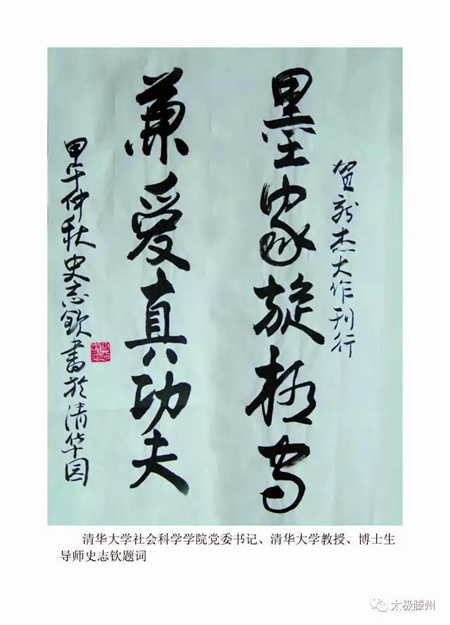 贺杰大作刊行
墨家旋极守
兼爱真功夫
甲午仲秋史志钦書於清华园
清华大学社会科学学院党委书记、清华大学教授、博士生
导师史志钦题词
太极滕州